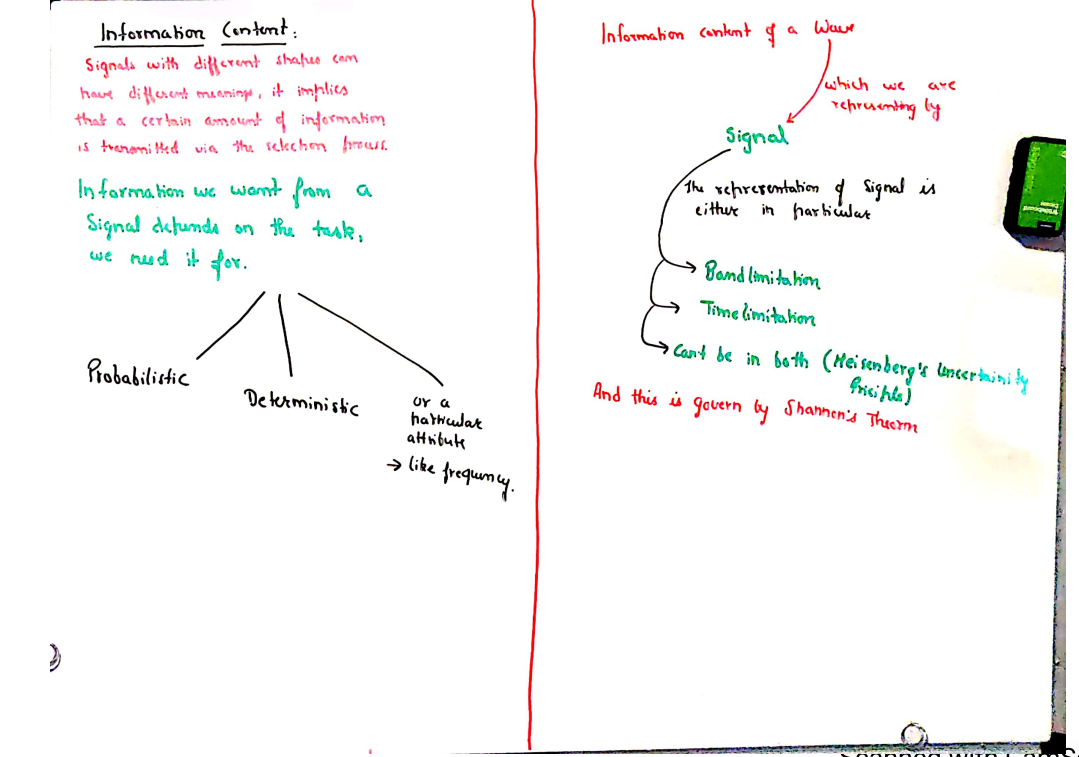 Information Content:
Signals with different shapes can
have different meanings, it implies
that a certain amount of information
is transmitted via the selection process.
Information we want from a
Signal depends on the task,
we need it for.
Probabilistic
Deterministic
or a
particular
attribute
→ like frequency.
Information content of a Wave
which we are
representing by
Signal
The representation of Signal is
either in particular
Band limitation
Time limitation
Can't be in both (Heisenberg's Uncertainity
Priciple)
And this is govern by Shannon's Theorm